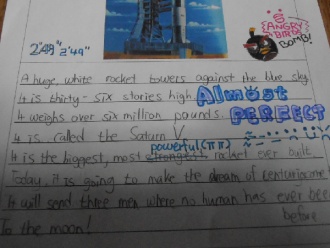 2'48" 2'49"
ANGRY BIRDS
BOMB!
A huge, white rocket towers against the blue sky.
It is thirty-six stories high.
Almost
It weighs over six million pounds.
PERFECT
It is called the Saturn V.
powerful
It is the biggest, most strongest rocket ever built.
Today, it is going to make the dream of centuries come
It will send three men where no human has ever been
before
To the moon!